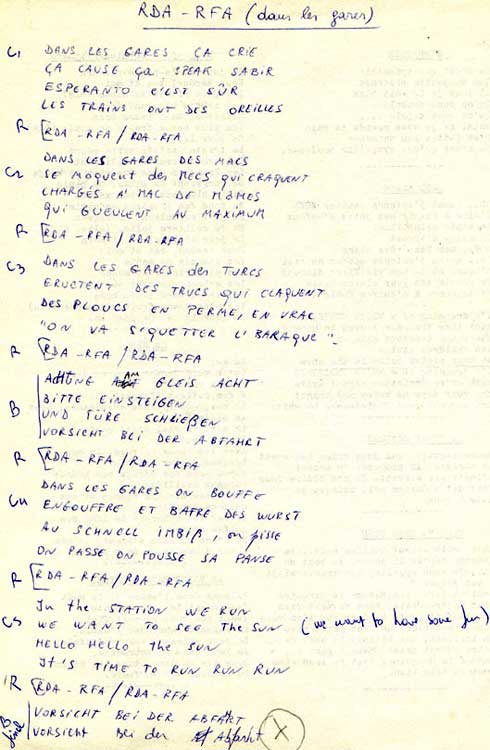 RDA - RFA (dans les gares)
C1 DANS LES GARES ÇA CRIE
ÇA CAUSE ça SPEAK SABIR
ESPERANTO C'EST SÛR
LES TRAINS ONT DES OREILLES
R [RDA - RFA / RDA - RFA
C2 DANS LES GARES DES MACS
SE MOQUENT DES MECS QUI CRAQUENT
CHARGÉS A' MAC DE MÔMES
QUI GUEULENT AU MAXIMUM
R [RDA - RFA / RDA - RFA
C3 DANS LES GARES des TURCS
ERUCTENT DES TRUCS QUI CLAQUENT
DES PLOUCS EN PERME, EN VRAC
"ON VA S'QUETTER L'BARAQUE"
R [RDA - RFA / RDA - RFA
AHTUNG AM GLEIS ACHT
BITTE EINSTEIGEN
B UND TÜRE SCHLIEßEN
VORSICHT BEI DER ABFAHRT
R [RDA - RFA / RDA - RFA
DANS LES GARES ON BOUFFE
C4 ENGOUFFRE ET BAFRE DES WURST
AU SCHNELL IMBIß, on pisse
ON PASSE ON POUSSE SA PANSE
R [RDA - RFA / RDA - RFA
In the STATION WE RUN
C5 WE WANT TO SEE the SUN (we want to have some fun)
HELLO HELLO the SUN
It'S TIME TO RUN RUN RUN
R [RDA - RFA / RDA - RFA
B VORSICHT BEI DER ABFAHRT
final VORSICHT Bei der Abfahrt X